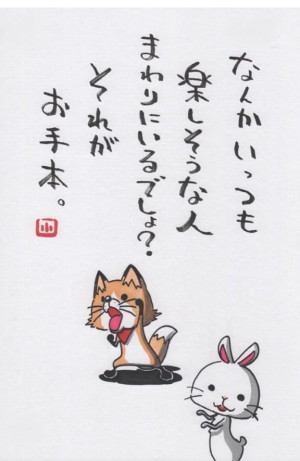 なんかいっつも
楽しそうな人
まわりにいるでしょ?
それが
お手本。